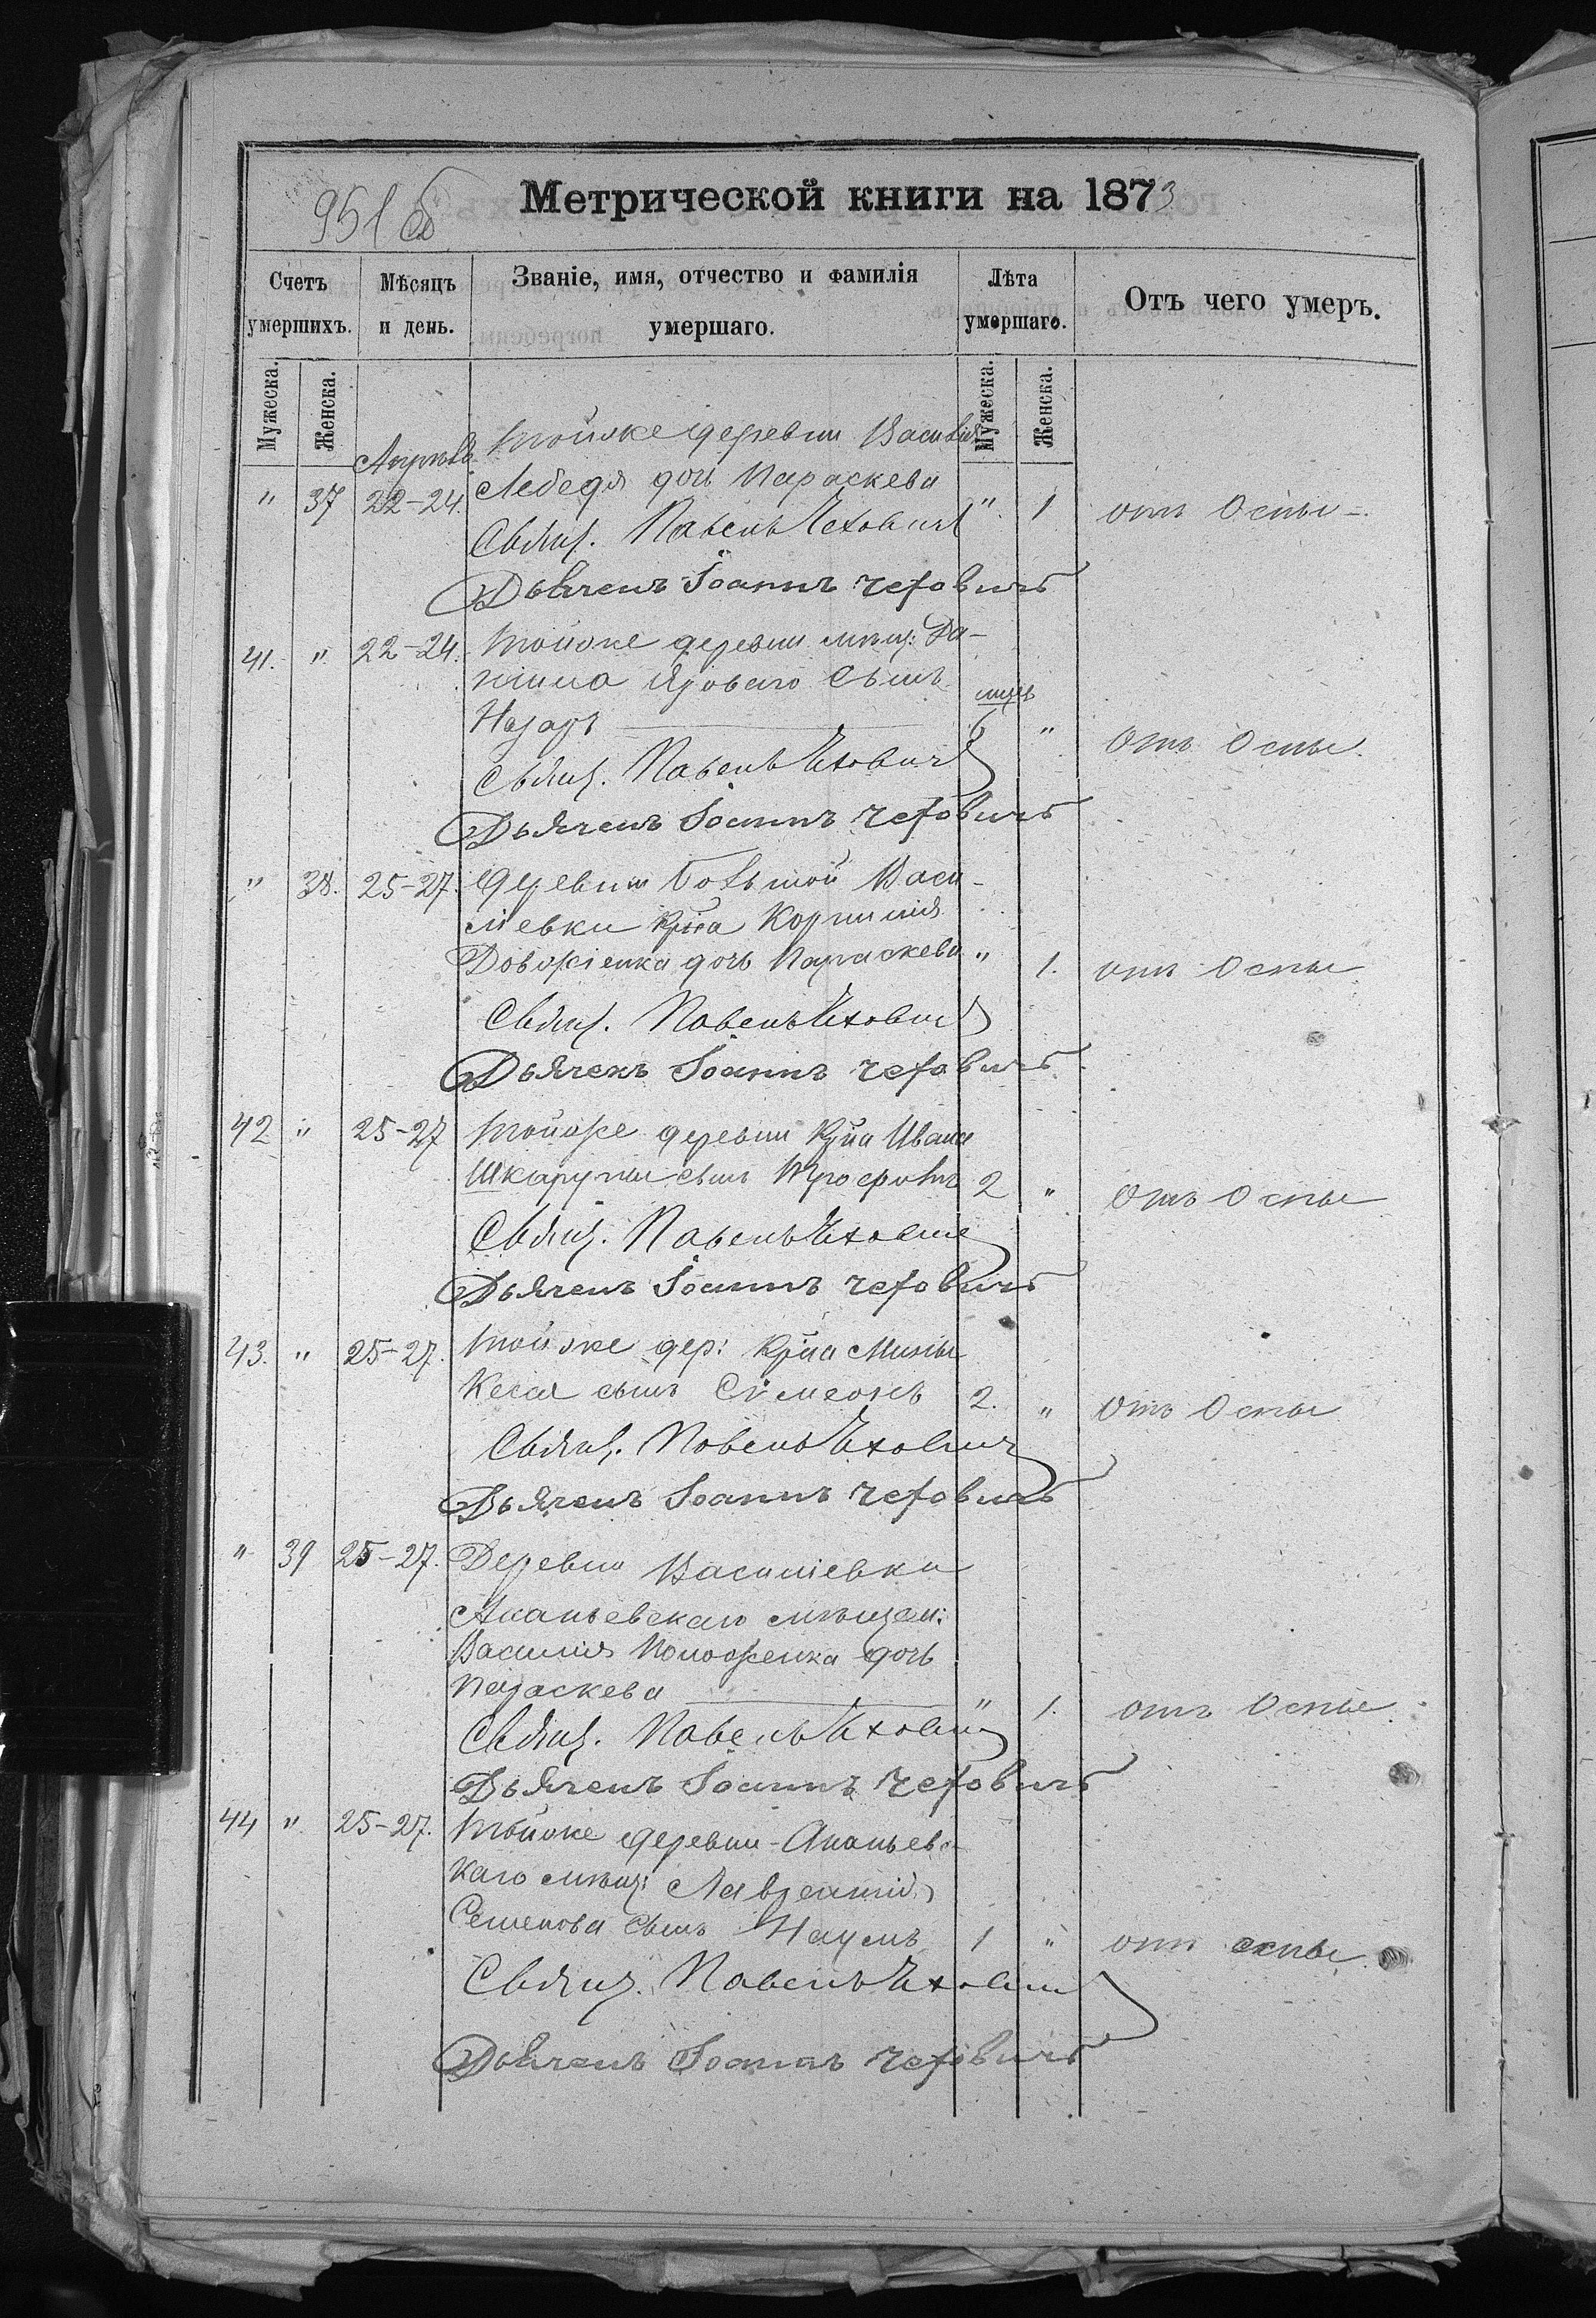 951 б
Метрической книги на 1873
Счетъ умершихъ.
Мѣсяцъ и день.
Званіе, имя, отчество и фамилія умершаго.
Лѣта умершаго.
Отъ чего умеръ.
Мужеска. Женска. Мужеска. Женска.
Апрѣль Тойже деревни Василія
" 37 22-24. Лебедя дочь Параскева " 1 отъ Оспы
Свящ. Павелъ Чеховичъ
Дьячекъ Іоаннъ Чеховичъ
41. " 22-24. Тойже деревни мѣщ:
сынъ мѣсяц
Назаръ 6 " Отъ Оспы.
Свящ. Павелъ Чеховичъ
Дьячекъ Іоаннъ Чеховичъ
" 38. 25-27. Деревни Большой Васи-
лievки Крна Корнилія
дочь Параскева " 1. отъ Оспы
Свящ. Павелъ Чеховичъ
Дьячекъ Іоаннъ Чеховичъ
42 " 25-27 Тойже деревни Крна Ивана
Шкарупы сынъ Трофимъ 2 " Отъ Оспы
Свящ. Павелъ Чеховичъ
Дьячекъ Іоаннъ Чеховичъ
43. " 25-27. Тойже дер: Крна Мины
сынъ Сѵмеонъ 2. " Отъ Оспы
Свящ. Павелъ Чеховичъ
Дьячекъ Іоаннъ Чеховичъ
" 39 25-27. Деревни Василіевки
Ананьевскаго мѣщан:
Василія дочь
Параскева " 1. отъ Оспы.
Свящ. Павелъ Чеховичъ
Дьячекъ Іоаннъ Чеховичъ
44 " 25-27. Тойже деревни Ананьевс-
каго мѣщ: Лаврентія
Семенова сынъ Наумъ 1 " отъ оспы.
Свящ. Павелъ Чеховичъ
Дьячекъ Іоаннъ Чеховичъ